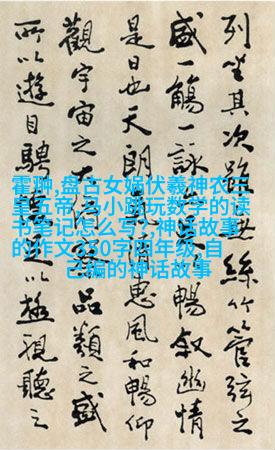 列坐其次雖無絲竹管弦之
盛一觴一詠暢敘幽情
是日也天朗清惠風和暢仰
觀宇宙之大品類之盛
所以遊目騁以極視聽之
霍翀,盘古女娲伏羲神农三
皇五帝,马小跳玩数学的读
书笔记怎么写?,神话故事
的作文350字四年级,自
己编的神话故事